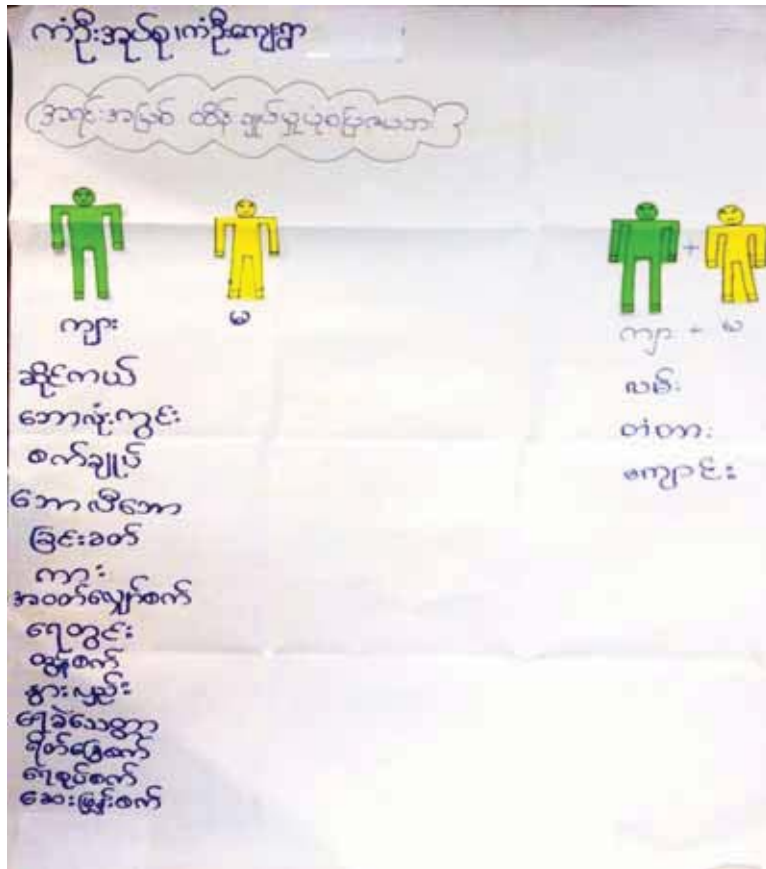 ကံဦးအုပ်စု၊ကံဦးကျေးရွာ
အရင်းအမြစ် ထိန်းချုပ်မှုပုံစံပြဇယား
ကျား
မ
ဆိုင်ကယ်
ဘောလုံးကွင်း
စက်ချုပ်
ဘောလီဘော
ခြင်းခတ်
ကား
အဝတ်လျှော်စက်
ရေတွင်း
ထွန်စက်
နွားလှည်း
ရေခဲသေတ္တာ
ရိတ်ခြွေစက်
ရေစုပ်စက်
ဆေးဖြန်းစက်
+
ကျား + မ
လမ်း
တံတား
ကျောင်း